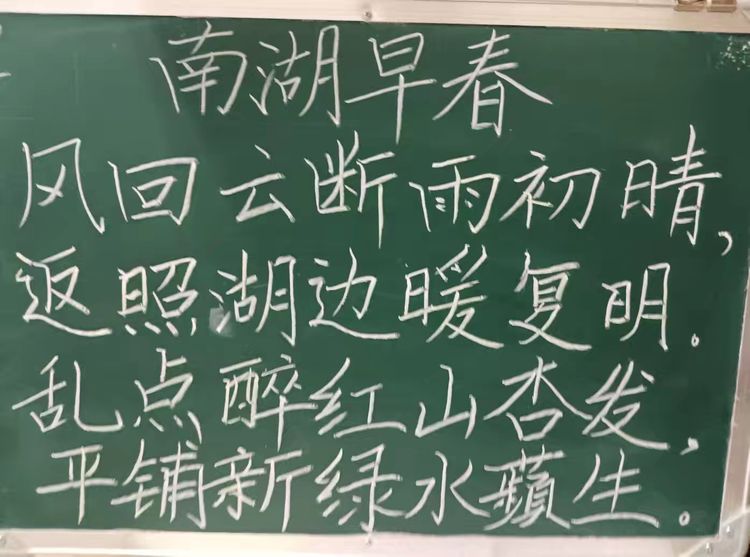 南湖早春
风回云断雨初晴，
返照湖边暖复明。
乱点醉红山杏发，
平铺新绿水蘋生。